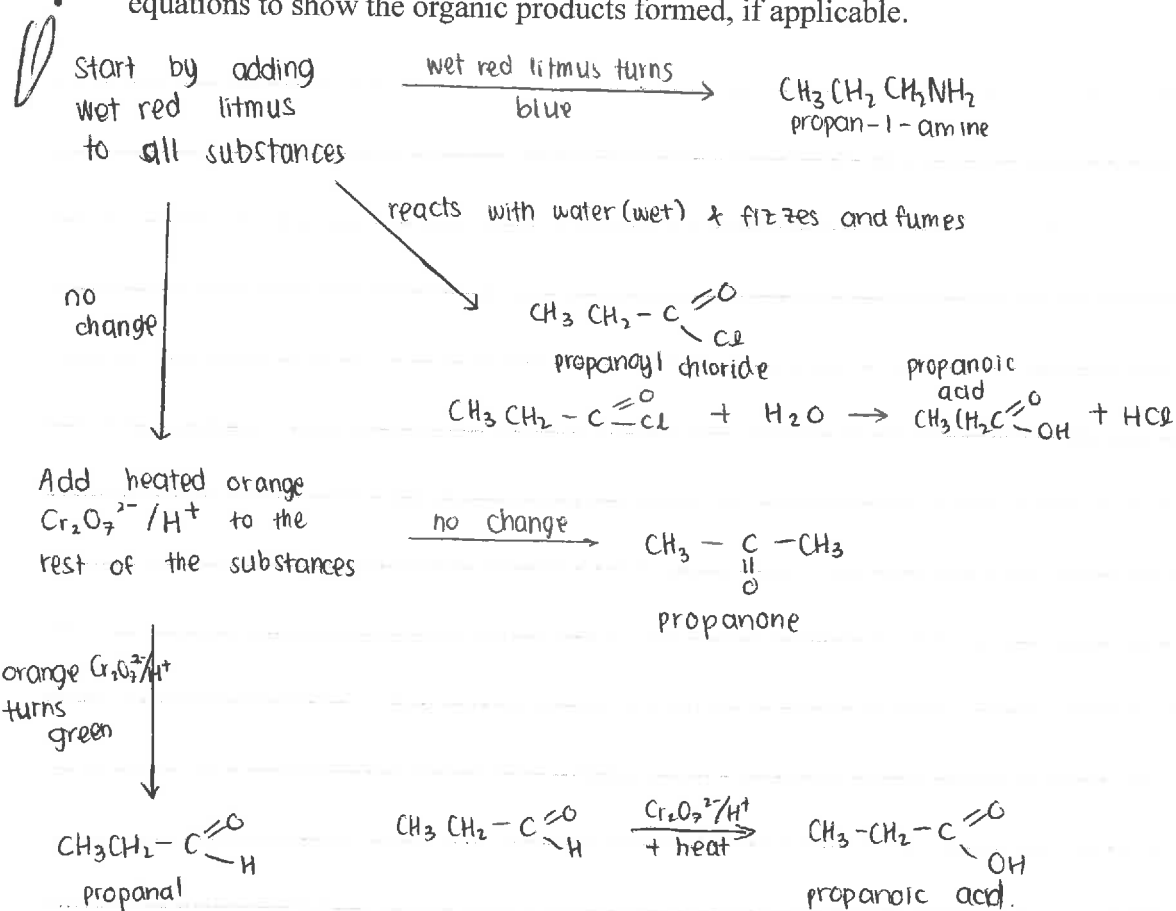 equations to show the organic products formed, if applicable.
Start by adding
wet red litmus
to all substances
wet red litmus turns
blue
CH₃ CH₂ CH₂NH₂
propan-1-amine
reacts with water (wet) & fizzes and fumes
no
change
CH₃ CH₂ - C =O
Cl
propanoyl chloride
propanoic
acid
CH₃ CH₂ - C =O - Cl + H₂O → CH₃CH₂C =O - OH + HCl
Add heated orange
Cr₂O₇²⁻/H⁺ to the
rest of the substances
no change
CH₃ - C - CH₃
O
propanone
orange Cr₂O₇²⁻/H⁺
turns
green
CH₃CH₂ - C =O - H
propanal
CH₃ CH₂ - C =O - H
Cr₂O₇²⁻/H⁺
+ heat
CH₃ - CH₂ - C =O
OH
propanoic acid.